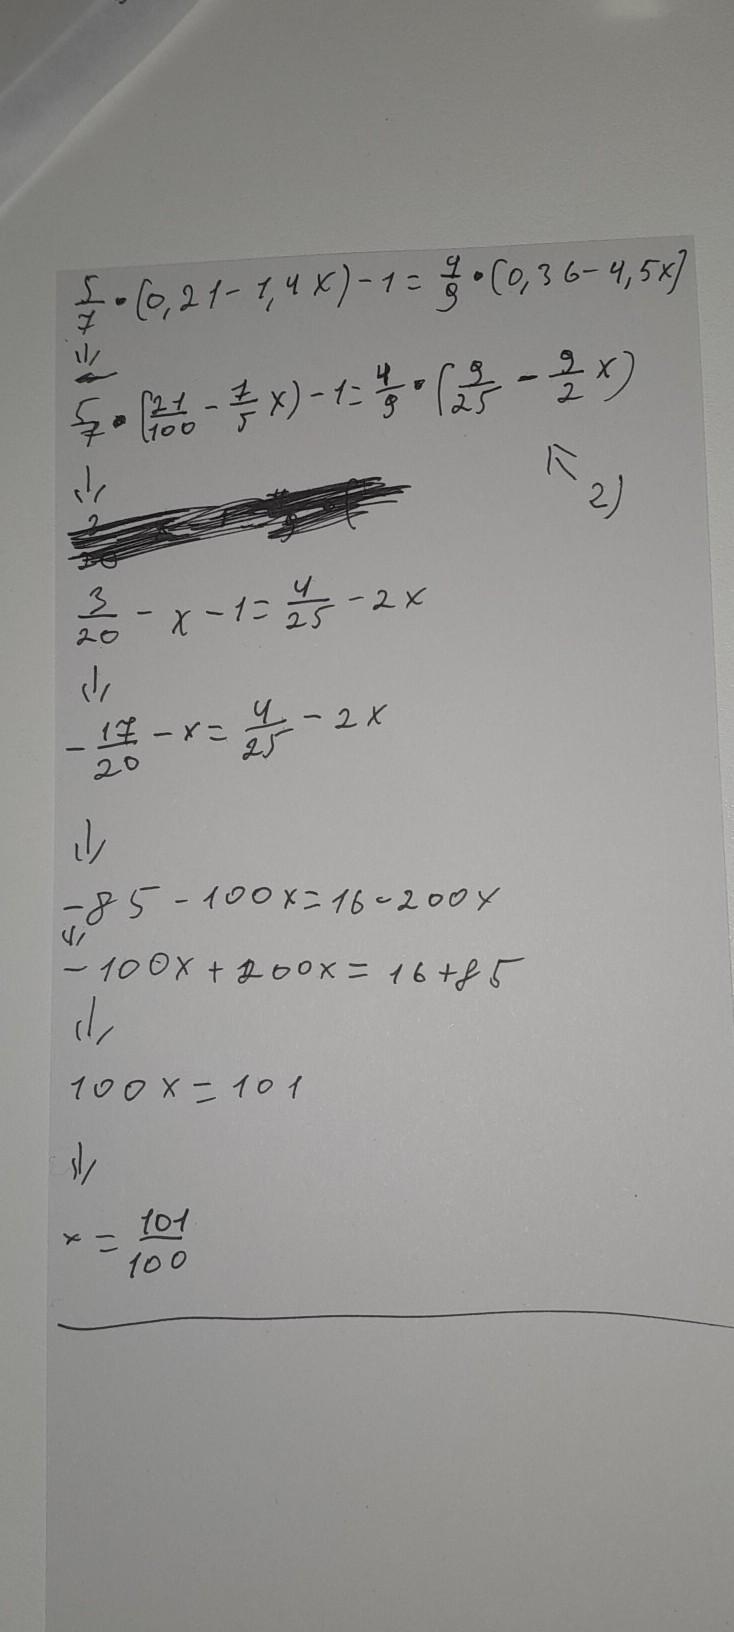 5/7 • (0,21 - 1,4x) - 1 = 4/9 • (0,36 - 4,5x)
⇓
5/7 • (21/100 - 7/5 x) - 1 = 4/9 • (9/25 - 9/2 x)
⇓
⇖ 2)
3/20 - x - 1 = 4/25 - 2x
⇓
- 17/20 - x = 4/25 - 2x
⇓
-85 - 100x = 16 - 200x
⇓
-100x + 200x = 16 + 85
⇓
100x = 101
⇓
x = 101/100